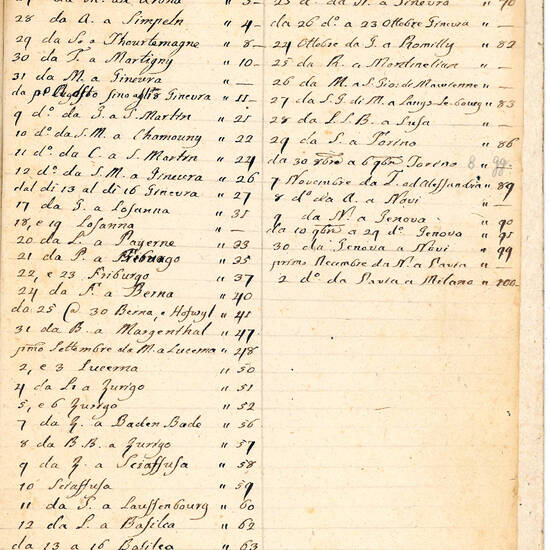 28 da A. a Simpeln " 4 —
29 da S. a Thourtemagne " 8 —
30 da T. a Martigny " 10 —
31 da M. a Ginevra " —
da p° Agosto fino alli 8 Ginevra " 11 —
9 d° da G. a S. Martin " 21
10 d° da S. M. a Chamouny " 22
11 d° da C. a S. Martin " 24
12 d° da S. M. a Ginevra " 26
dal di 13 al di 16 Ginevra " 27
17 da G. a Losanna " 31
18, e 19 Losanna " —
20 da L. a Payerne " 33
21 da P. a Friburgo " 35
22, e 23 Friburgo " 37
24 da F. a Berna " 40
da 25 @ 30 Berna, e Hofwyl " 41
31 da B. a Margenthal " 47
pmo Settembre da M. a Lucerna " 48
2, e 3 Lucerna " 50
4 da L. a Zurigo " 51
5, e 6 Zurigo " 52
7 da Z. a Baden Bade " 56
8 da B. B. a Zurigo " 57
9 da Z. a Sciaffusa " 58
10 Sciaffusa " 59
11 da S. a Lauffenbourg " 60
12 da L. a Basilea " 62
da 13 a 16 Basilea " 63
a Ginevra " 70
da 26 d° a 23 Ottobre Ginevra " —
24 Ottobre da G. a Romilly " 82
25 da R. a Montmelian " —
26 da M. a S. Gio: di Maurienne " —
27 da S. G. di M. a Lans-le-bourg " 83
28 da L. L. B. a Susa " —
29 da S. a Torino " 86
da 30 8bre a 6 9bre Torino 8 88
7 Novembre da T. ad Alessandria " 89
8 d° da A. a Novi " —
9 da N. a Genova " 90
da 10 9bre a 29 d° Genova " 91
30 da Genova a Novi " 99
primo Decembre da N. a Pavia " —
2 d° da Pavia a Milano " 100